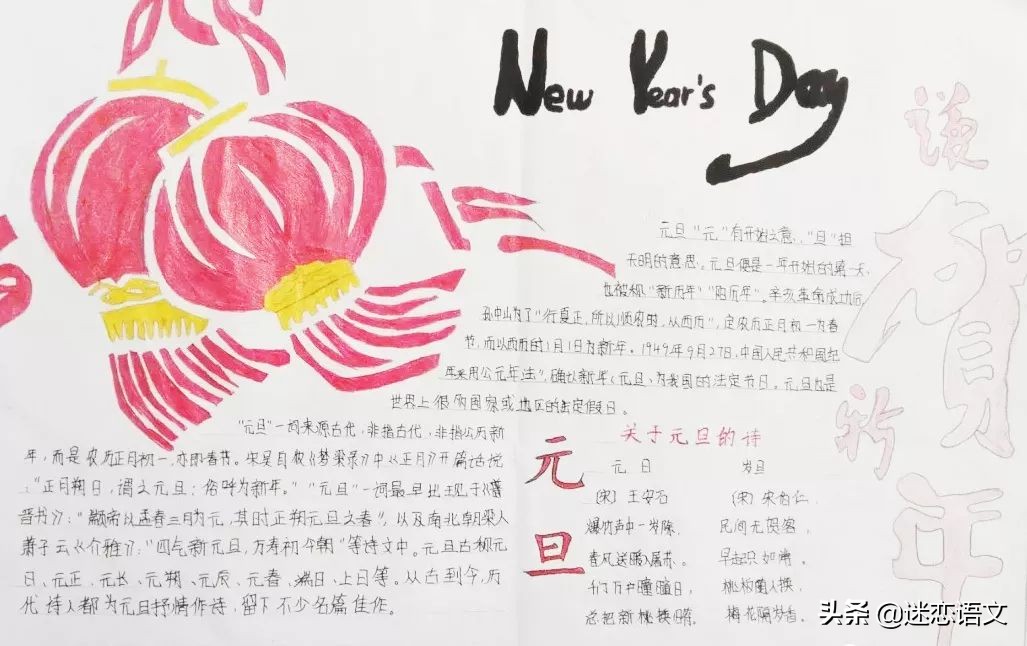 New Year's Day
谨
贺
新
年
元旦"元"有开始之意,"旦"担
天明的意思。元旦便是一年开始的第一天,
也被称"新历年""阳历年"。辛亥革命成功后,
孙中山为了"行夏正,所以顺农时,从西历",定农历正月初一为春
节,而以西历的1月1日为新年。1949年9月27日,中国人民共和国纪
年采用公元年法",确认新年(元旦)为我国的法定节日。元旦也是
世界上很多国家或地区的法定假日。
"元旦"一词来源古代,非指古代,非指公历新
年,而是农历正月初一,亦即春节。宋吴自牧《梦粱录》中《正月》开篇话说
:"正月朔日,谓之元旦:俗呼为新年。""元旦"一词最早出现于《晋
晋书》:"颛帝以孟春三月为元,其时正朔元旦之春",以及南北朝梁人
萧子云《介雅》:"四气新元旦,万寿初今朝"等诗文中。元旦古称元
日、元正、元长、元朔、元辰、元春、端日、上日等。从古到今,历
代诗人都为元旦抒情作诗,留下不少名篇佳作。
元
旦
关于元旦的诗
元日 岁旦
(宋)王安石 (宋)宋伯仁
爆竹声中一岁除, 民间无贺客,
春风送暖入屠苏。 早起只如常。
千门万户曈曈日, 桃板随人换,
总把新桃换旧符。 梅花隔岁香。
头条 @迷恋语文